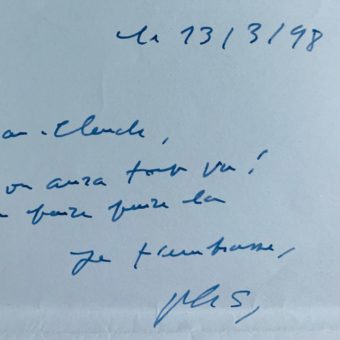 le 13/3/98
an-Claude,
on aura tout vu!
faire la
Je t'embrasse,